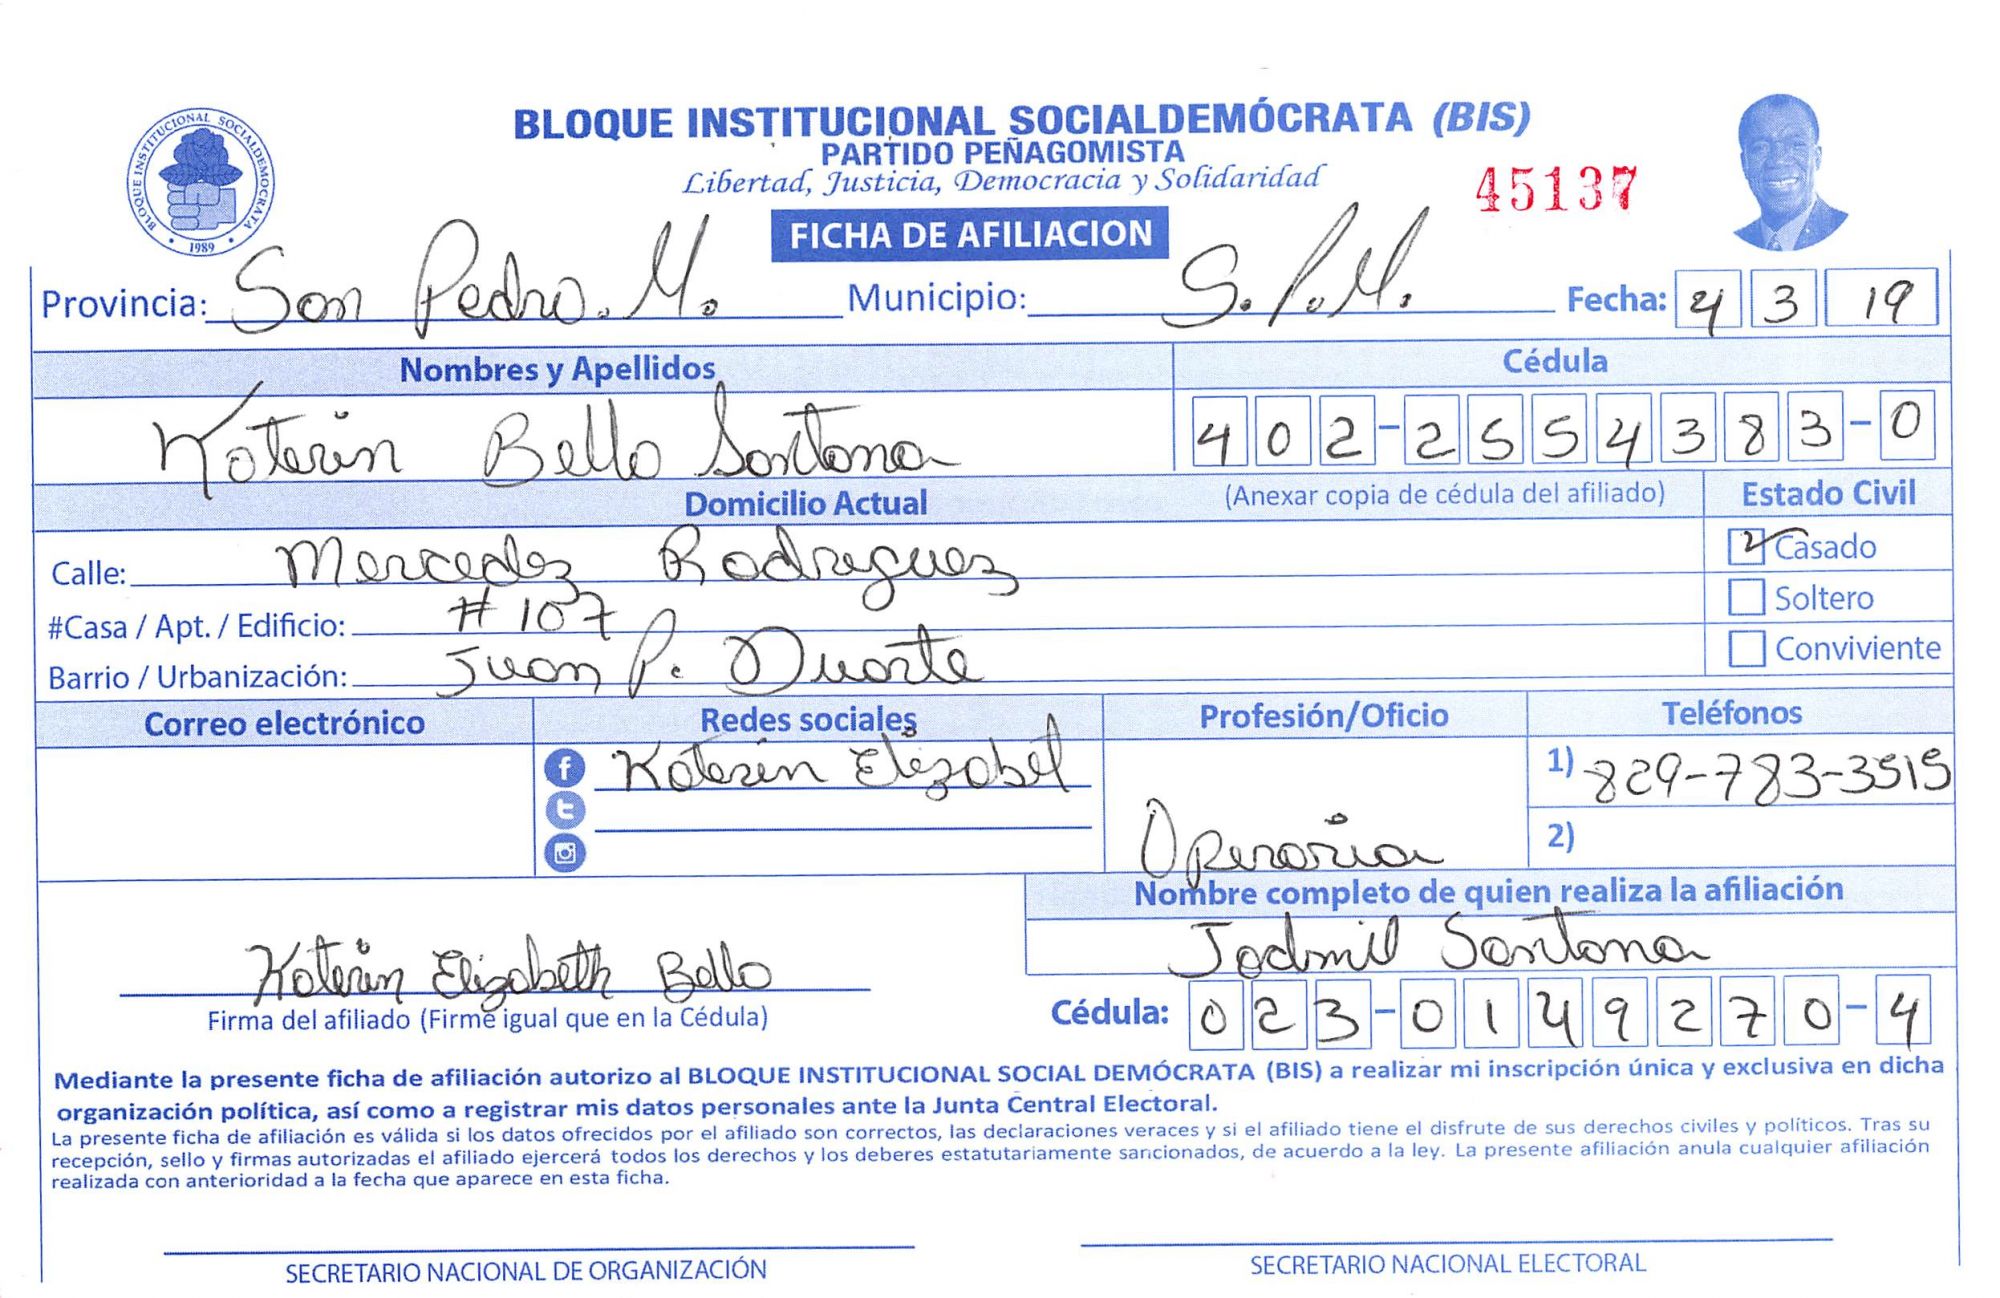 BLOQUE INSTITUCIONAL SOCIALDEMÓCRATA (BIS)
PARTIDO PEÑAGOMISTA
Libertad, Justicia, Democracia y Solidaridad
45137
BLOQUE INSTITUCIONAL SOCIALDEMOCRATA
1989
FICHA DE AFILIACION
Provincia: San Pedro. M. Municipio: S. P. M. Fecha: 4 3 19
Nombres y Apellidos Cédula
Katerin Bello Santana 402-2554383-0
Domicilio Actual (Anexar copia de cédula del afiliado) Estado Civil
Calle: Mercedez Rodreguez Casado
#Casa / Apt. / Edificio: # 107 Soltero
Barrio / Urbanización: Juan P. Duarte Conviviente
Correo electrónico Redes sociales Profesión/Oficio Teléfonos
Katerin Elizabet 1) 829-783-3515
Operaria 2)
Nombre completo de quien realiza la afiliación
Jadmil Santana
Katerin Elizabeth Bello
Firma del afiliado (Firme igual que en la Cédula) Cédula: 023-0149270-4
Mediante la presente ficha de afiliación autorizo al BLOQUE INSTITUCIONAL SOCIAL DEMÓCRATA (BIS) a realizar mi inscripción única y exclusiva en dicha
organización política, así como a registrar mis datos personales ante la Junta Central Electoral.
La presente ficha de afiliación es válida si los datos ofrecidos por el afiliado son correctos, las declaraciones veraces y si el afiliado tiene el disfrute de sus derechos civiles y políticos. Tras su
recepción, sello y firmas autorizadas el afiliado ejercerá todos los derechos y los deberes estatutariamente sancionados, de acuerdo a la ley. La presente afiliación anula cualquier afiliación
realizada con anterioridad a la fecha que aparece en esta ficha.
SECRETARIO NACIONAL DE ORGANIZACIÓN SECRETARIO NACIONAL ELECTORAL